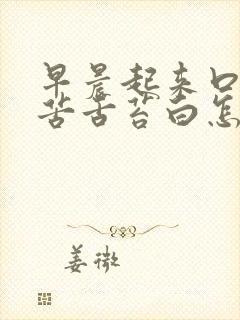 早晨起来口
苦舌苔白怎
姜微